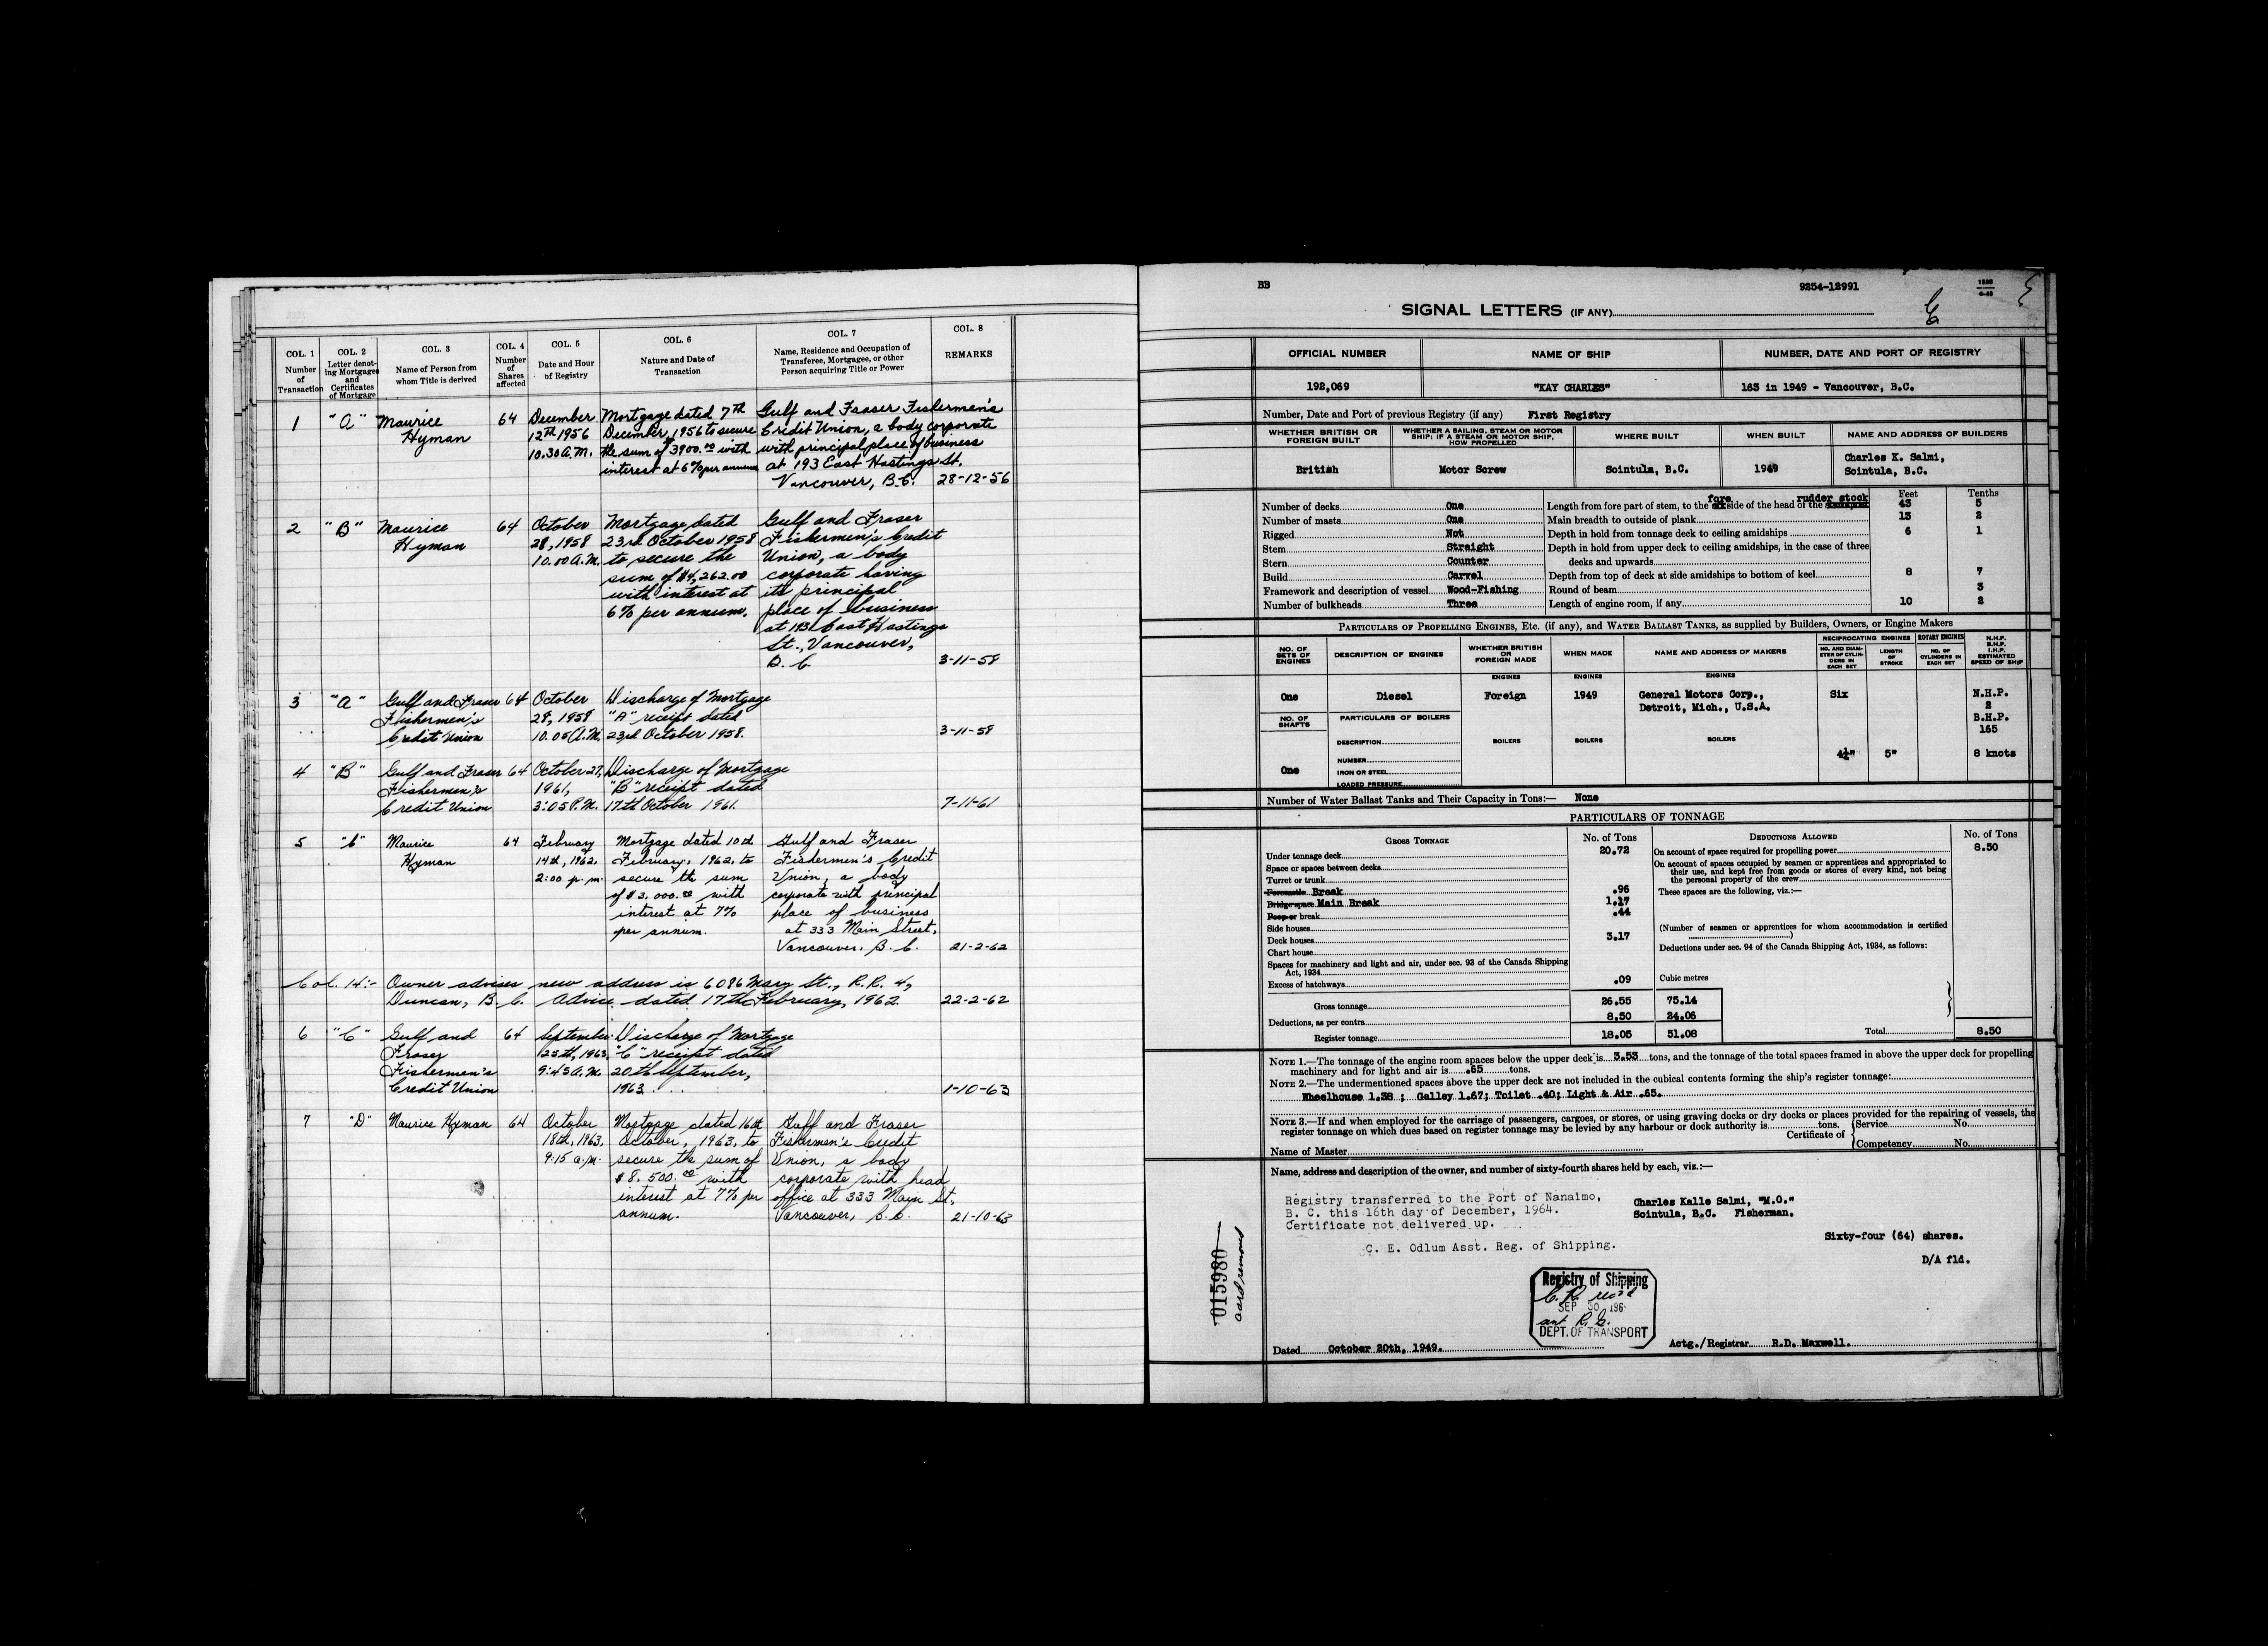 COL. 1
Number
of
Transaction
COL. 2
Letter denot-
ing Mortgages
and
Certificates
of Mortgage
COL. 3
Name of Person from
whom Title is derived
COL. 4
Number
of
Shares
affected
COL. 5
Date and Hour
of Registry
COL. 6
Nature and Date of
Transaction
COL. 7
Name, Residence and Occupation of
Transferee, Mortgagee, or other
Person acquiring Title or Power
COL. 8
REMARKS
1 "A" Maurice 64 December Mortgage dated 7th Gulf and Fraser Fishermen's
Hyman 12th 1956 December, 1956 to secure Credit Union, a body corporate
10.30 A.M. the sum of 3900.00 with with principal place of business
interest at 6% per annum at 193 East Hastings St.
Vancouver, B.C. 28-12-56
2 "B" Maurice 64 October Mortgage dated Gulf and Fraser
Hyman 28, 1958 23rd October 1958 Fishermen's Credit
10.00 A.M. to secure the Union, a body
sum of $4,262.00 corporate having
with interest at its principal
6% per annum. place of business
at 193 East Hastings
St., Vancouver,
B.C. 3-11-58
3 "A" Gulf and Fraser 64 October Discharge of Mortgage
Fishermen's 28, 1958 "A" receipt dated
Credit Union 10.05 A.M. 23rd October 1958. 3-11-58
4 "B" Gulf and Fraser 64 October 27, Discharge of Mortgage
Fishermen's 1961, "B" receipt dated
Credit Union 3:05 P.M. 17th October 1961. 7-11-61
5 "C" Maurice 64 February Mortgage dated 10th Gulf and Fraser
Hyman 14th, 1962, February, 1962, to Fishermen's Credit
2:00 p.m. secure the sum Union, a body
of $3,000.00 with corporate with principal
interest at 7% place of business
per annum. at 333 Main Street,
Vancouver, B.C. 21-2-62
Col. 14:- Owner advises new address is 6096 Mary St., R.R. 4,
Duncan, B.C. Advice dated 17th February, 1962 22-2-62
6 "C" Gulf and 64 September Discharge of Mortgage
Fraser 25th, 1963, "C" receipt dated
Fishermen's 9:45 A.M. 20th September,
Credit Union 1963. 1-10-63
7 "D" Maurice Hyman 64 October Mortgage dated 16th Gulf and Fraser
18th, 1963, October, 1963, to Fishermen's Credit
9:15 a.m. secure the sum of Union, a body
$8,500.00 with corporate with head
interest at 7% per office at 333 Main St,
annum. Vancouver, B.C. 21-10-63
BB 9254-12991
SIGNAL LETTERS (IF ANY)
OFFICIAL NUMBER NAME OF SHIP NUMBER, DATE AND PORT OF REGISTRY
192,069 "KAY CHARLES" 163 in 1949 - Vancouver, B.C.
Number, Date and Port of previous Registry (if any) First Registry
WHETHER BRITISH OR
FOREIGN BUILT
WHETHER A SAILING, STEAM OR MOTOR
SHIP; IF A STEAM OR MOTOR SHIP,
HOW PROPELLED
WHERE BUILT WHEN BUILT NAME AND ADDRESS OF BUILDERS
British Motor Screw Sointula, B.C. 1949 Charles K. Salmi,
Sointula, B.C.
Feet Tenths
Number of decks One Length from fore part of stem, to the fore side of the head of the rudder stock 43 5
Number of masts One Main breadth to outside of plank 13 2
Rigged Not Depth in hold from tonnage deck to ceiling amidships 6 1
Stem Straight Depth in hold from upper deck to ceiling amidships, in the case of three
Stern Counter decks and upwards
Build Carvel Depth from top of deck at side amidships to bottom of keel 8 7
Framework and description of vessel Wood-Fishing Round of beam 3
Number of bulkheads Three Length of engine room, if any 10 2
PARTICULARS OF PROPELLING ENGINES, ETC. (if any), and WATER BALLAST TANKS, as supplied by Builders, Owners, or Engine Makers
NO. OF
SETS OF
ENGINES
DESCRIPTION OF ENGINES
WHETHER BRITISH
OR
FOREIGN MADE
WHEN MADE
NAME AND ADDRESS OF MAKERS
RECIPROCATING ENGINES ROTARY ENGINES
NO. AND DIAM-
ETER OF CYLIN-
DERS IN
EACH SET
LENGTH
OF
STROKE
NO. OF
CYLINDERS IN
EACH SET
N.H.P.
B.H.P.
I.H.P.
ESTIMATED
SPEED OF SHIP
ENGINES ENGINES ENGINES
One Diesel Foreign 1949 General Motors Corp., Six N.H.P.
Detroit, Mich., U.S.A. 2
NO. OF
SHAFTS
PARTICULARS OF BOILERS
B.H.P.
165
DESCRIPTION BOILERS BOILERS BOILERS
NUMBER 4¼" 5" 8 knots
One IRON OR STEEL
LOADED PRESSURE
Number of Water Ballast Tanks and Their Capacity in Tons:— None
PARTICULARS OF TONNAGE
GROSS TONNAGE No. of Tons DEDUCTIONS ALLOWED No. of Tons
Under tonnage deck 20.72 On account of space required for propelling power 8.50
Space or spaces between decks On account of spaces occupied by seamen or apprentices and appropriated to
their use, and kept free from goods or stores of every kind, not being
the personal property of the crew
Turret or trunk
Forecastle Break .96 These spaces are the following, viz.:—
Bridge space Main Break 1.17
Poop or break .44
Side houses (Number of seamen or apprentices for whom accommodation is certified
Deck houses 3.17
Chart house Deductions under sec. 94 of the Canada Shipping Act, 1934, as follows:
Spaces for machinery and light and air, under sec. 93 of the Canada Shipping
Act, 1934
Excess of hatchways .09 Cubic metres
Gross tonnage 26.55 75.14
Deductions, as per contra 8.50 24.06
Register tonnage 18.05 51.08 Total 8.50
NOTE 1.—The tonnage of the engine room spaces below the upper deck is 3.53 tons, and the tonnage of the total spaces framed in above the upper deck for propelling
machinery and for light and air is .65 tons.
NOTE 2.—The undermentioned spaces above the upper deck are not included in the cubical contents forming the ship's register tonnage:
Wheelhouse 1.38 ; Galley 1.67; Toilet .40; Light & Air .65.
NOTE 3.—If and when employed for the carriage of passengers, cargoes, or stores, or using graving docks or dry docks or places provided for the repairing of vessels, the
register tonnage on which dues based on register tonnage may be levied by any harbour or dock authority is tons. Service No.
Certificate of
Competency No.
Name of Master
Name, address and description of the owner, and number of sixty-fourth shares held by each, viz.:—
Registry transferred to the Port of Nanaimo,
B. C. this 16th day of December, 1964.
Certificate not delivered up.
C. E. Odlum Asst. Reg. of Shipping.
Charles Kalle Salmi, "M.O."
Sointula, B.C. Fisherman.
Sixty-four (64) shares.
D/A fld.
015980
card removed
Registry of Shipping
SEP 30 196
DEPT. OF TRANSPORT
Dated October 20th, 1949. Actg./Registrar R.D. Maxwell.